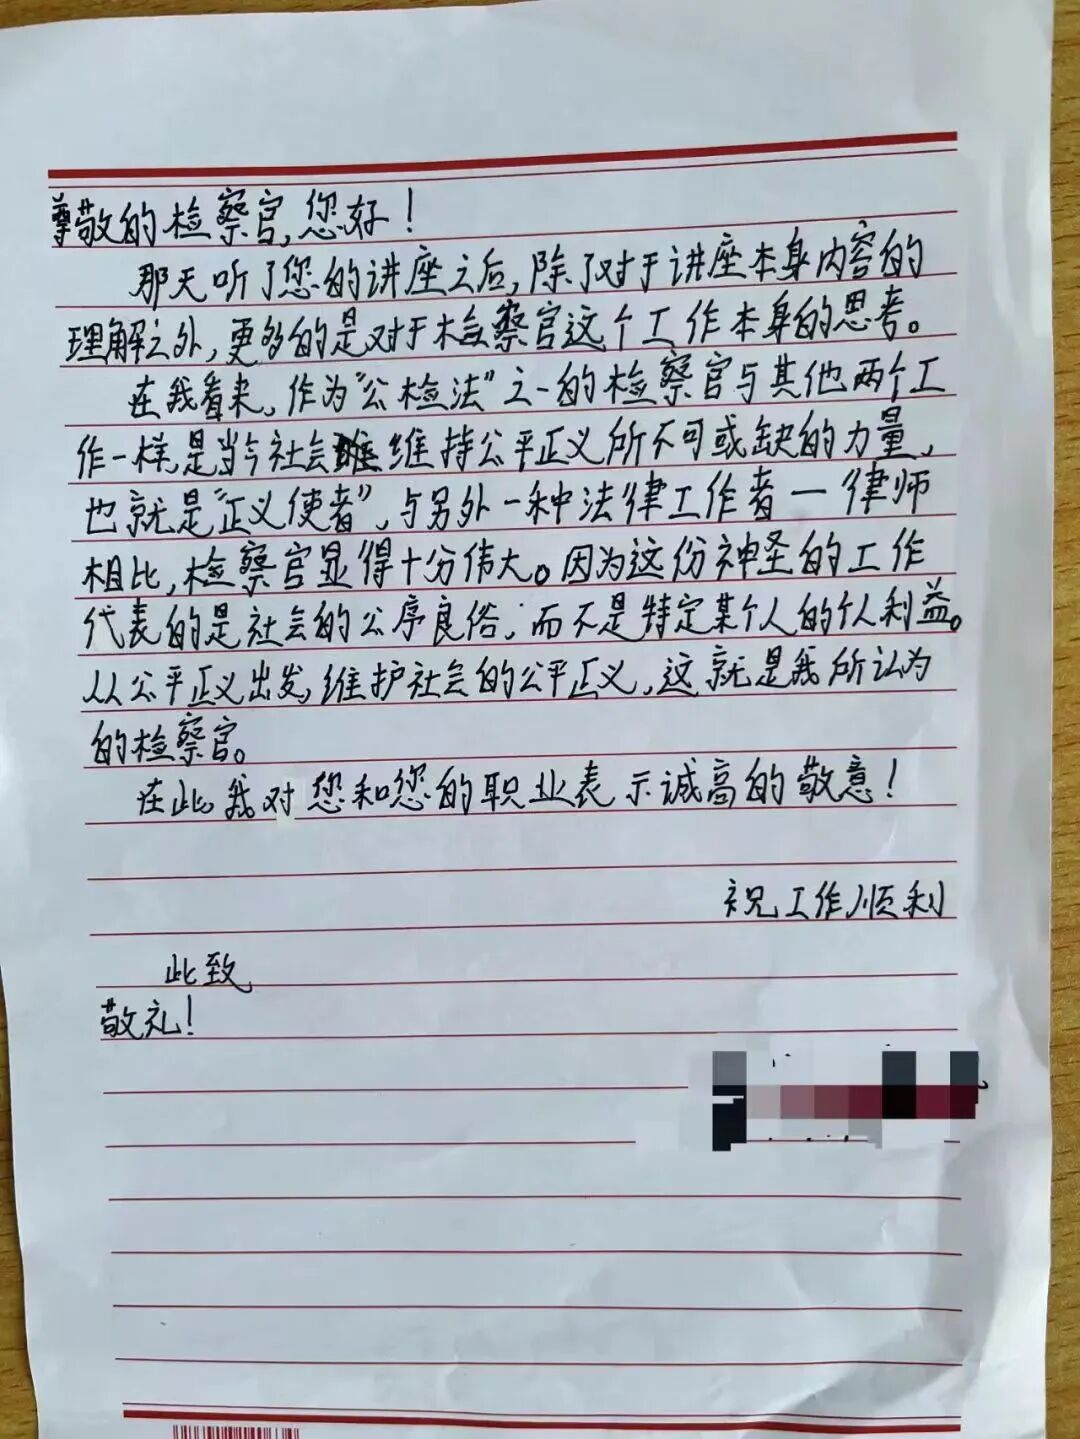 尊敬的检察官,您好!
那天听了您的讲座之后,除了对于讲座本身内容的
理解之外,更多的是对于检察官这个工作本身的思考。
在我看来,作为"公检法"之一的检察官与其他两个工
作一样,是当今社会维持公平正义所不可或缺的力量,
也就是"正义使者",与另外一种法律工作者一律师
相比,检察官显得十分伟大。因为这份神圣的工作
代表的是社会的公序良俗,而不是特定某个人的个人利益。
从公平正义出发,维护社会的公平正义,这就是我所认为
的检察官。
在此我对您和您的职业表示诚高的敬意!
祝工作顺利
此致
敬礼!